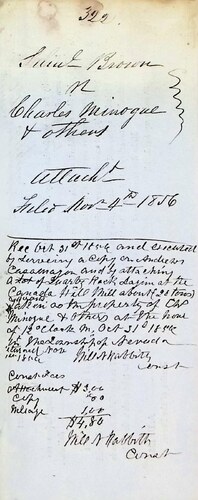 322
Saml Brown
vs
Charles Minogue
& others
Attacht
Filed Nov 4th 1856
Rec Oct 31st 1856 and executed
by serveing a copy on Andrew
and by attaching
a Lot of Quartz Rock Lying at the
Canada Hill Mill about (20 Tons)
taken as the property of Chs
Minogue & others at the hour
of 12 Oclock M, Oct 31st 1856
in the Township of Nevada
Will N Habbith
Const
Const Fees
Attachment $3.00
Copy
Mileage 1.00
$4.80
Will N Habbith
Const